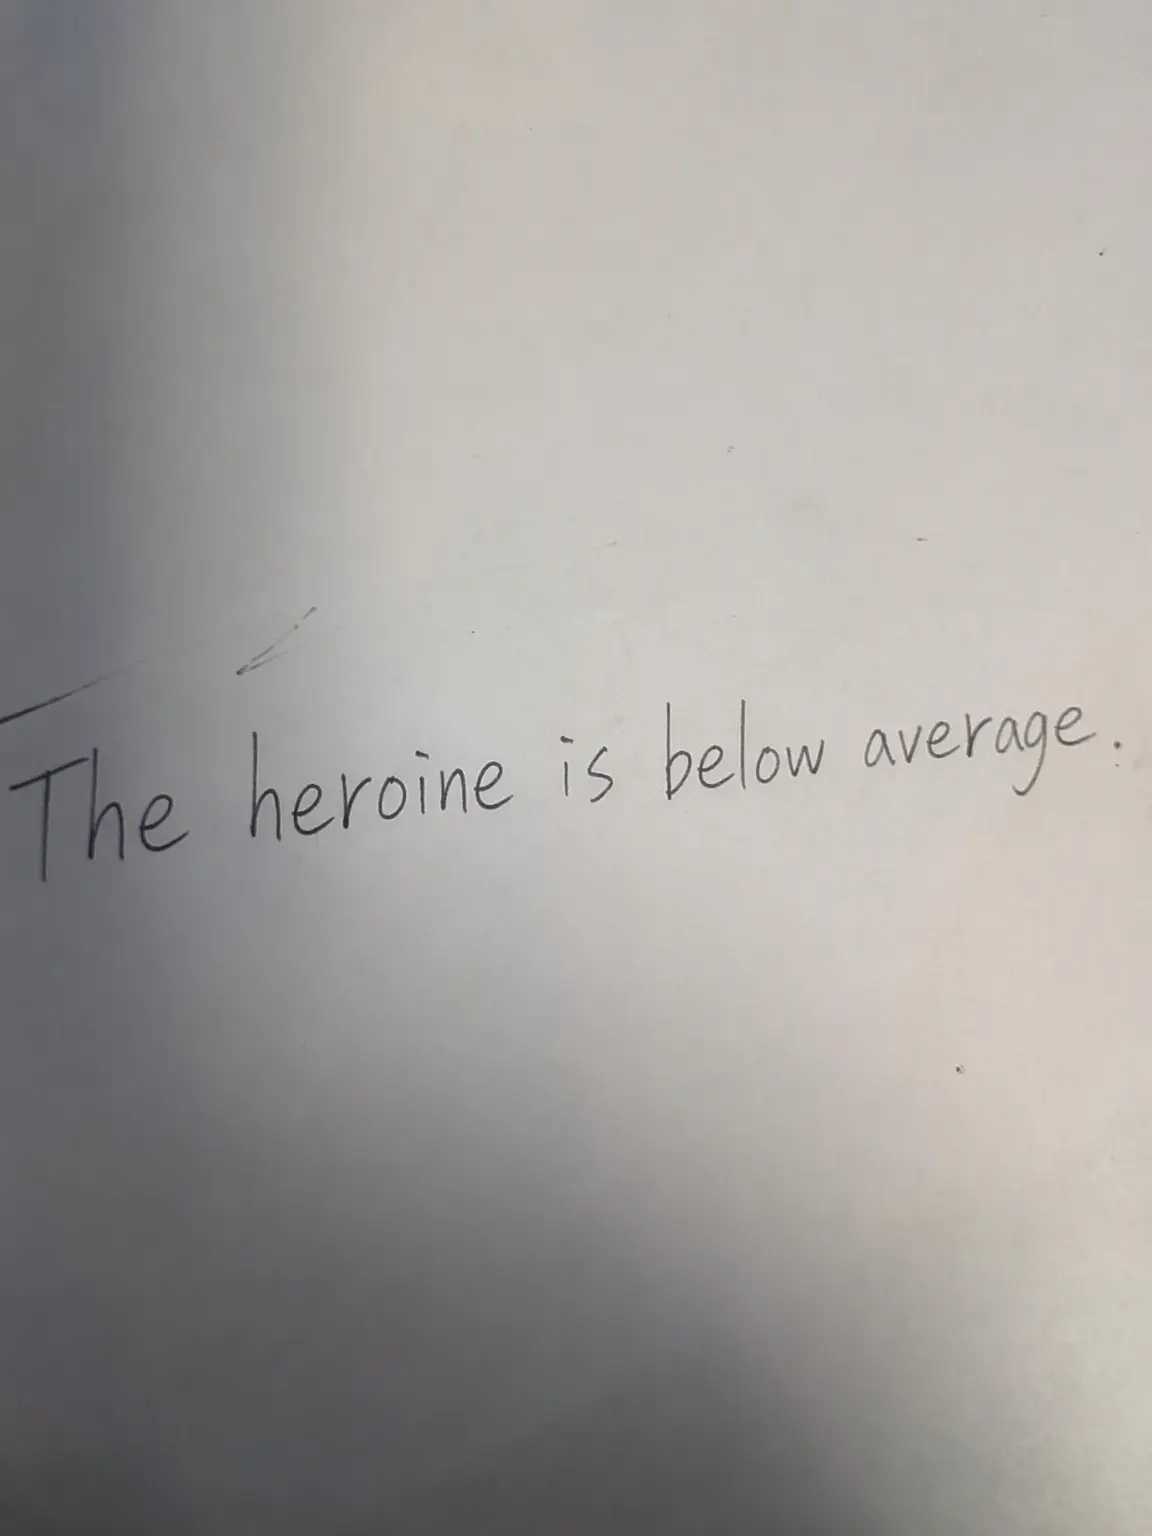 The heroine is below average.